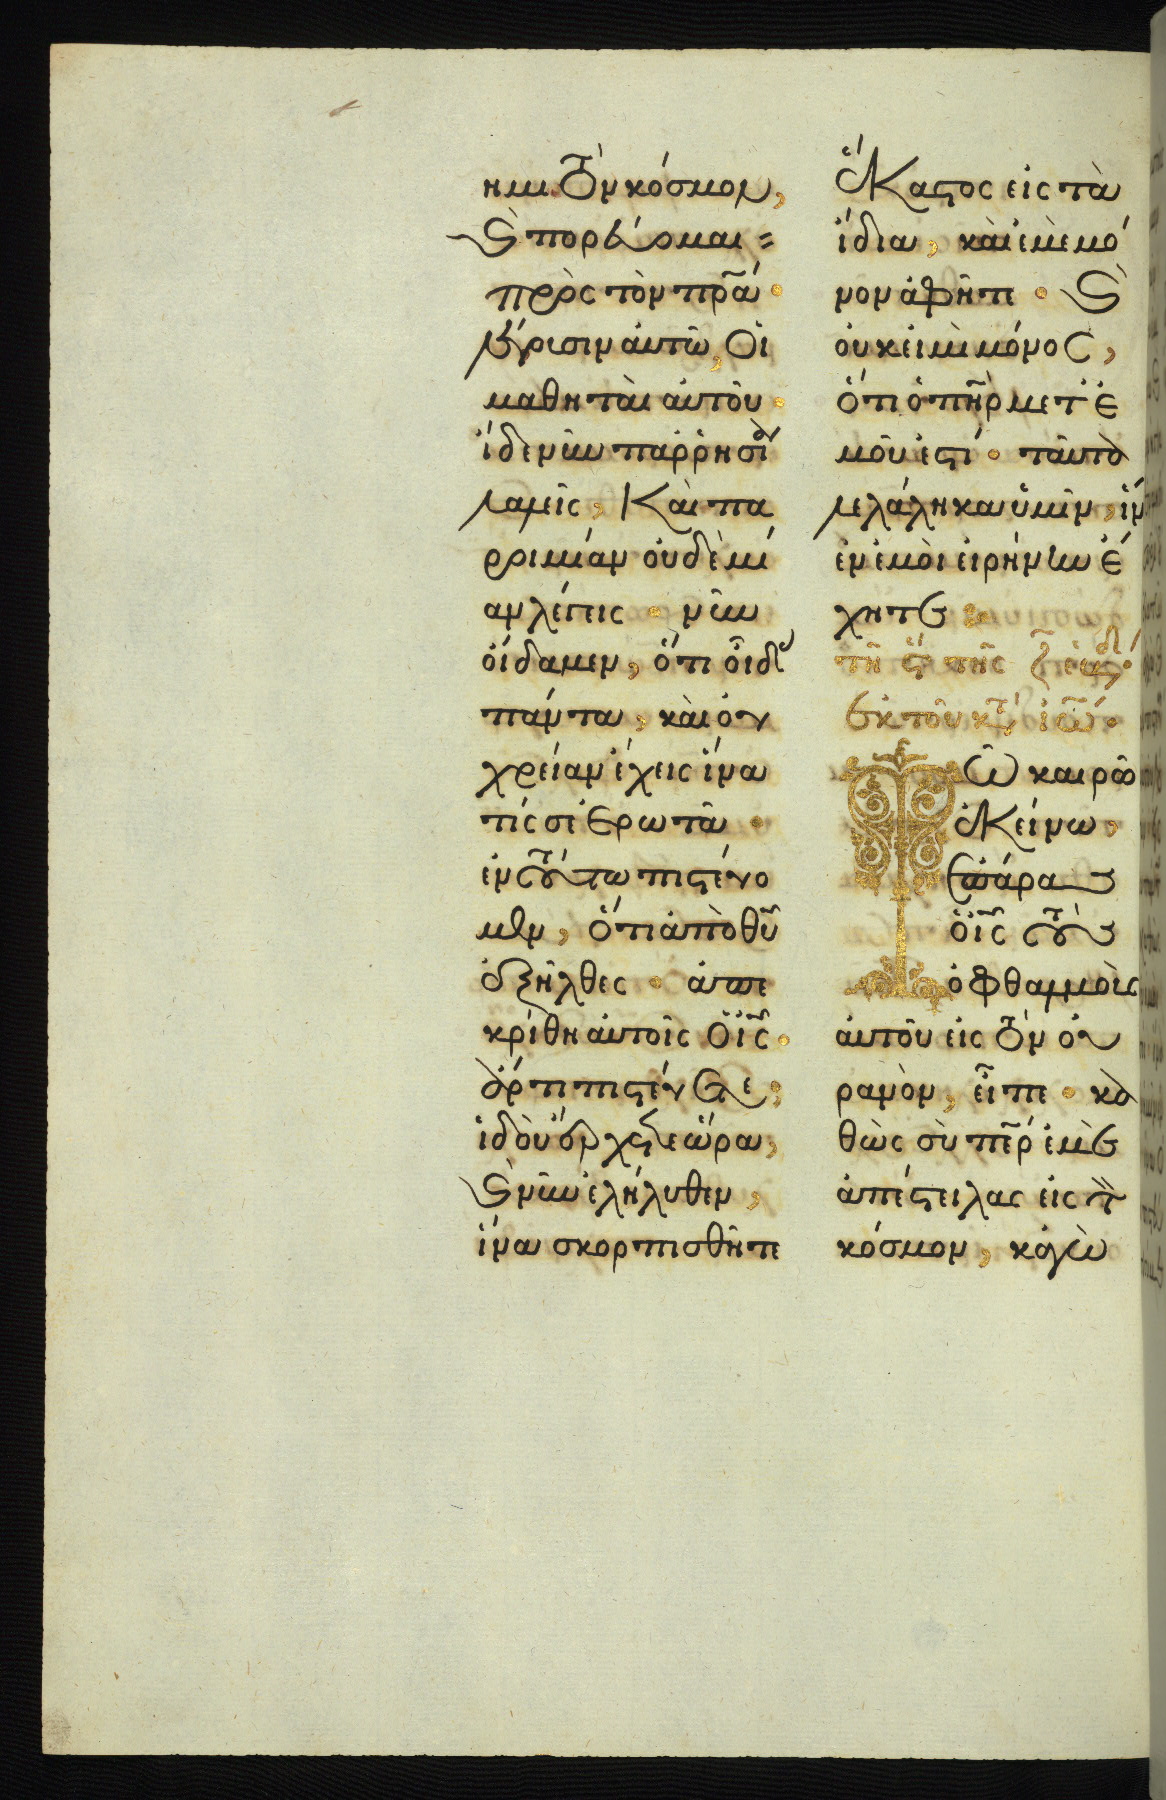 ημι τὸν κόσμον,
ϗ̀ πορεύομαι
πρὸς τὸν πρ̅α·
λέγουσιν αὐτῶ, Οἱ
μαθηταὶ αὐτοῦ·
ἴδε νῦν παρρησία
λαλεῖς, Καὶ πα
ροιμίαν οὐδὲμί
αν λέγεις· νῦν
οἴδαμεν, ὅτι οἶδας
πάντα, καὶ οὐ
χρείαν ἔχεις ἵνα
τίς σὲ ἐρωτᾶ·
ἐν τούτω πιστεύο
μεν, ὅτι ἀπὸ θῡ
ἐξῆλθες· ἀπε
κρίθη αὐτοῖς ὁ ἰς̅·
ἄρτι πιστεύετε;
ἰδοὺ ἔρχεται ὥρα,
ϗ̀ νῦν ἐλήλυθεν,
ἵνα σκορπισθῆτε
ἕκαστος εἰς τὰ
ἴδια, καὶ ἐμὲ μό
νον ἀφῆτε· ϗ̀
οὐκ εἰμὶ μόνος,
ὅτι ὁ πη̅ρ μετ' ἐ
μοῦ ἐστί· ταῦτα
λελάληκα ὑμῖν, ἵν
ἐν ἐμοὶ εἰρήνην ἔ
χητε
τῆ ϛ̅ τῆς ζ̅ ἑβδ·
ἐκ τοῦ κτ̅ ἰω̅·
Τῶ καιρῶ
ἐκείνω,
ἐπάρας
ὁ ἰς̅ τοὺς
ὀφθαλμοὺς
αὐτοῦ εἰς τὸν οὐ
ρανὸν, εἶπε· κα
θὼς σὺ πε̅ρ ἐμὲ
ἀπέστειλας εἰς τὸν
κόσμον, κἀγὼ